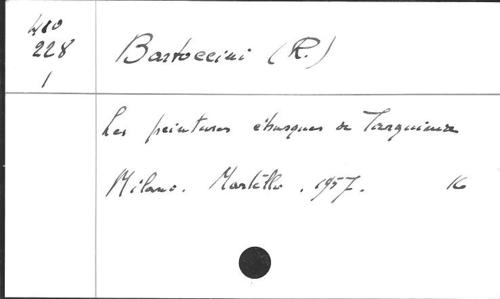 410
228
1
Bartoccini (R.)
Les peintures étrusques de Tarquinia
Milano. Martello. 1957. 16